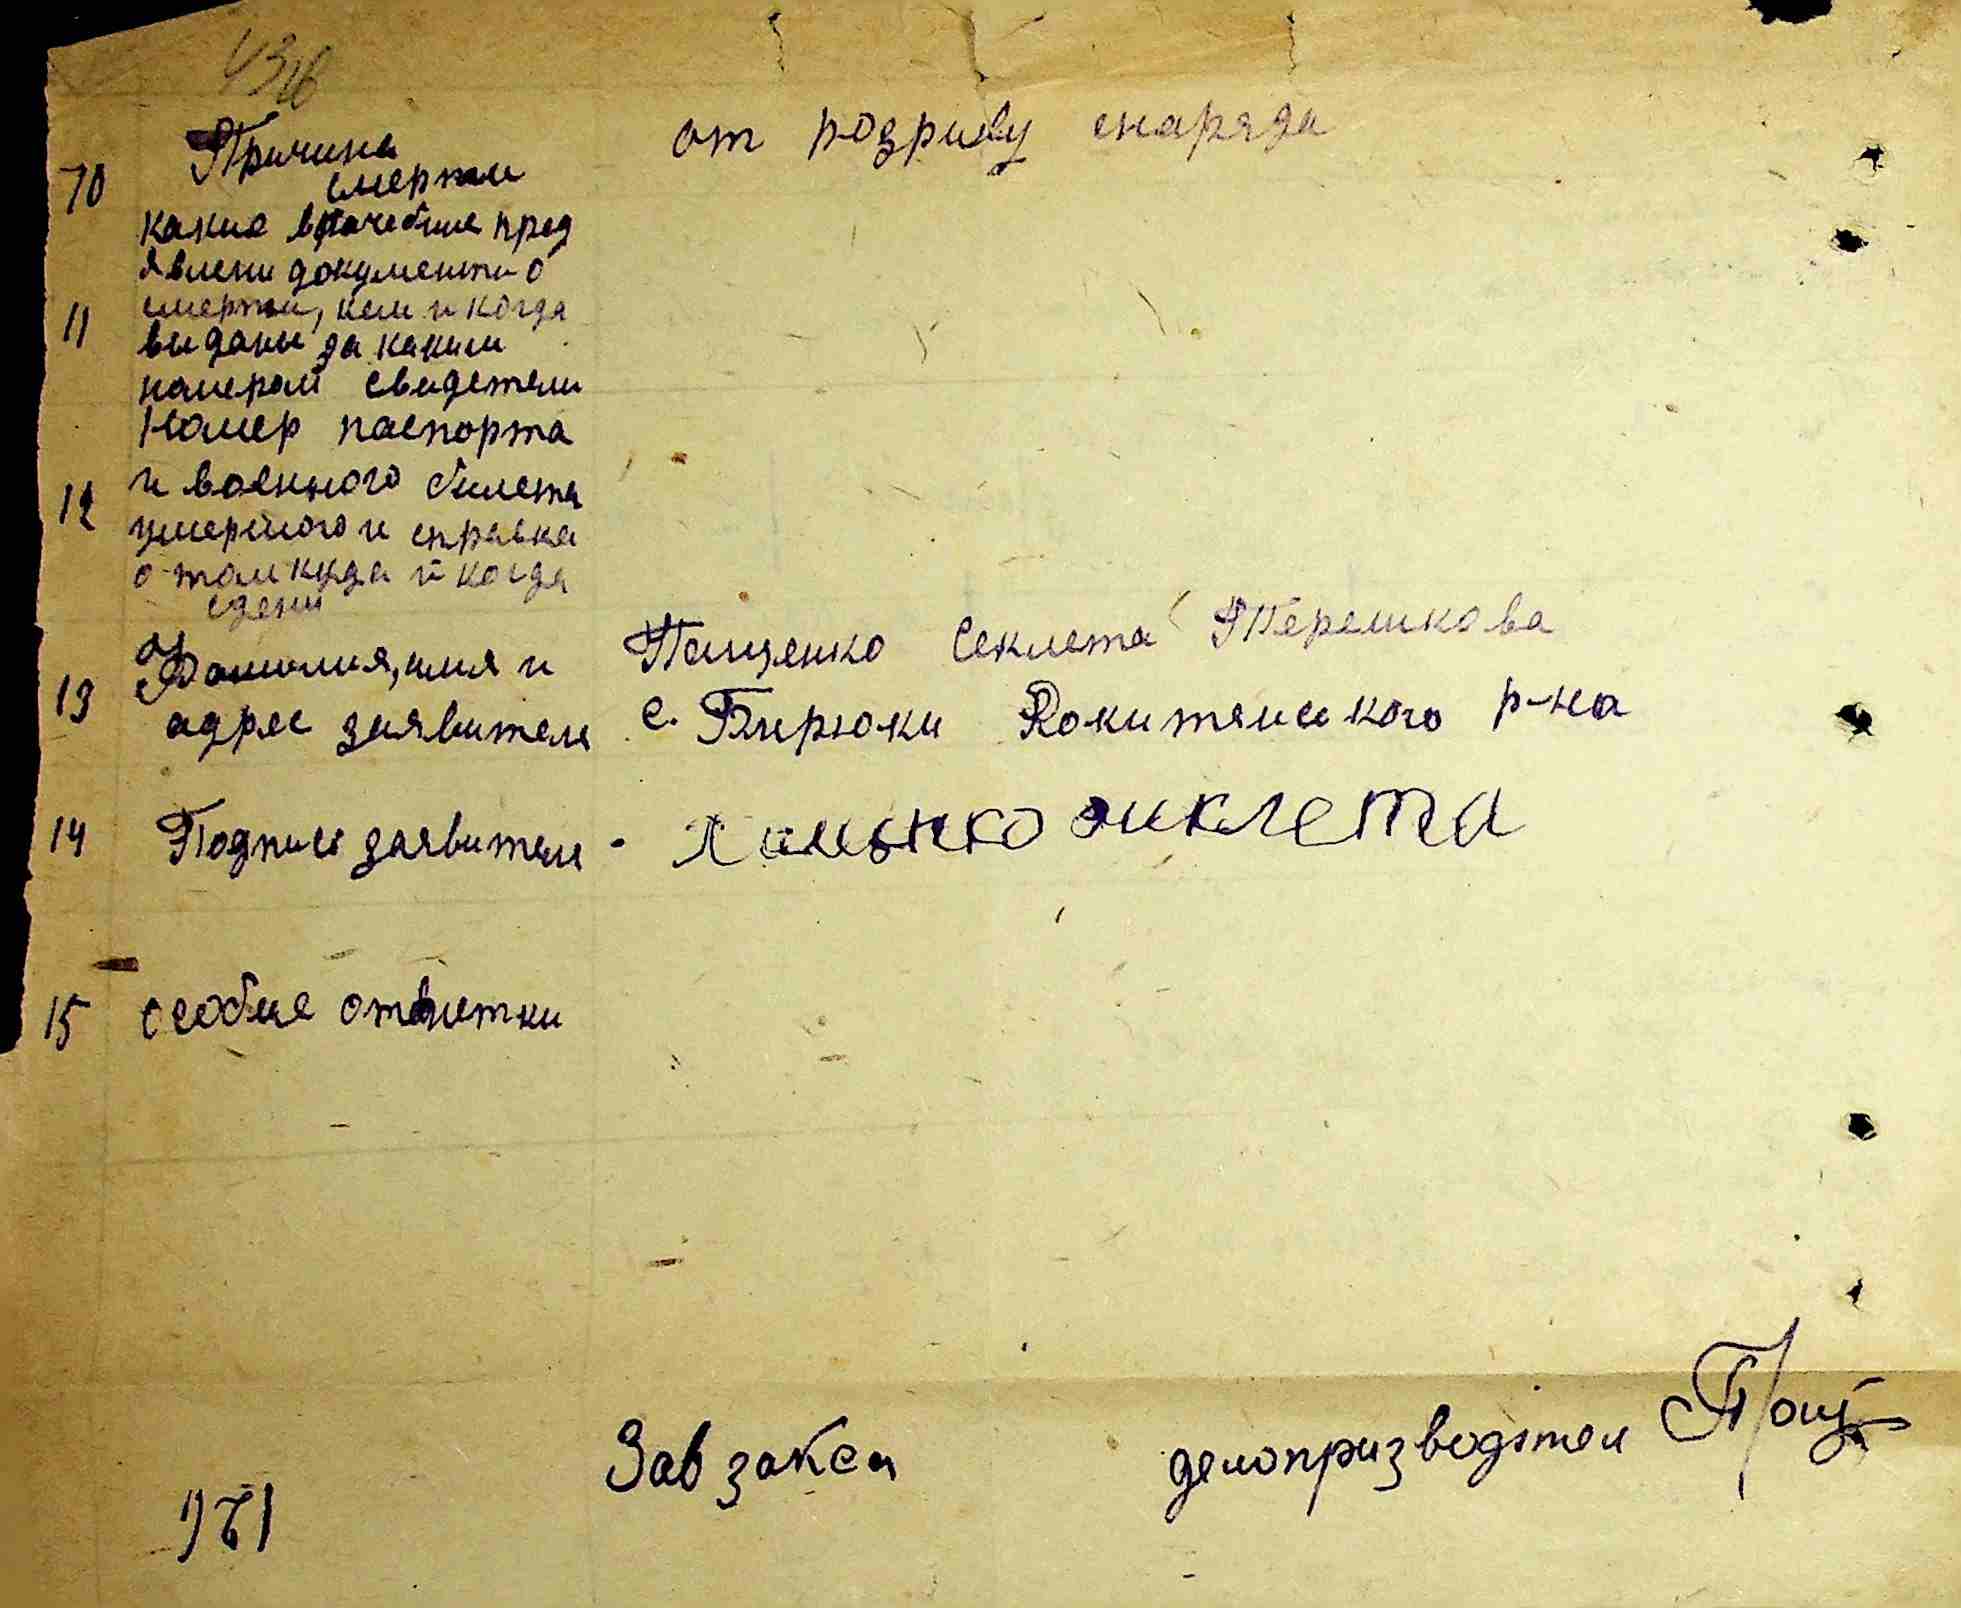 10 Причина смерти
от розриву снаряда
какие врачебние пред
явлени документи о
11 смерти, кем и когда
видани за каким
номером свидетели
Номер паспорта
и военного билета
12 умершого и справка
о том куда и когда
сдени
13 Фамилия, имя и
адрес заявителя
Пащенко Секлета Терешкова
с. Бирюки Рокитянского р-на
14 Подпись заявителя -
15 особие отметки
Зав загса
делопризводтел Пащ